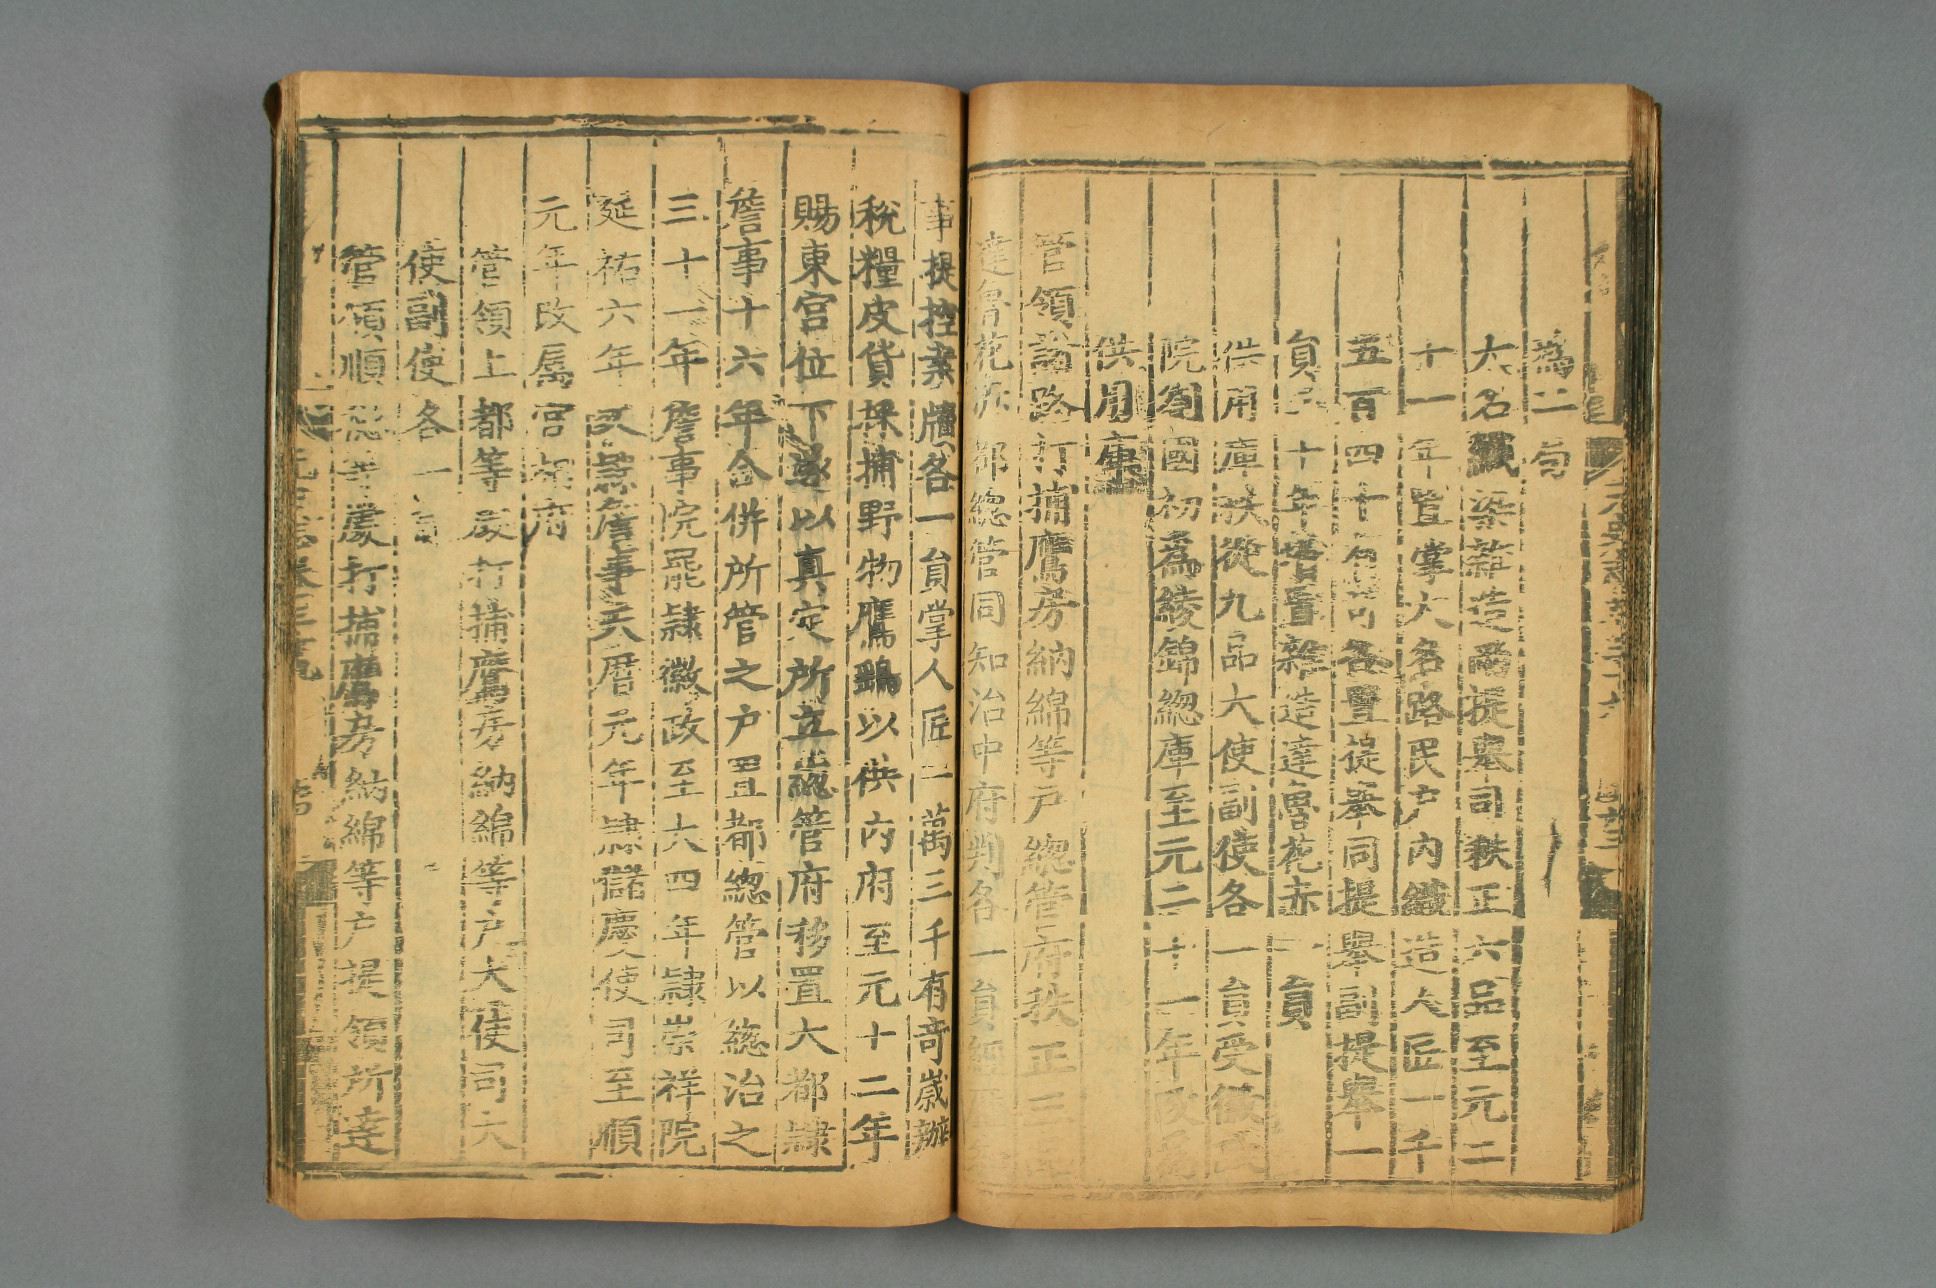 為二局
大名織染雜造兩提舉司秩正六品至元二
十一年置掌大名路民户内織造人匠一千
五百四十有奇各置提舉同提舉副提舉一
員三十年增置雜造達魯花赤一員
供用庫秩從九品大使副使各一員受徽政
院劄國初為綾錦總庫至元二十一年改為
供用庫
管領諸路打捕鷹房納綿等戸總管府秩正三品
達魯花赤都總管同知治中府判各一員經歷知
事提控案牘各一員掌人匠一萬三千有奇歲辦
稅糧皮貨採捕野物鷹鷂以供内府至元十二年
賜東宮位下遂以真定所立總管府移置大都隸
詹事十六年合併所管之户置都總管以總治之
三十一年詹事院罷隸徽政至大四年隸崇祥院
延祐六年又隸詹事天曆元年隸儲慶使司至順
元年改屬宮相府
管領上都等處打捕鷹房納綿等户大使司大
使副使各一員
管領順德等處打捕鷹房納綿等户提領所達